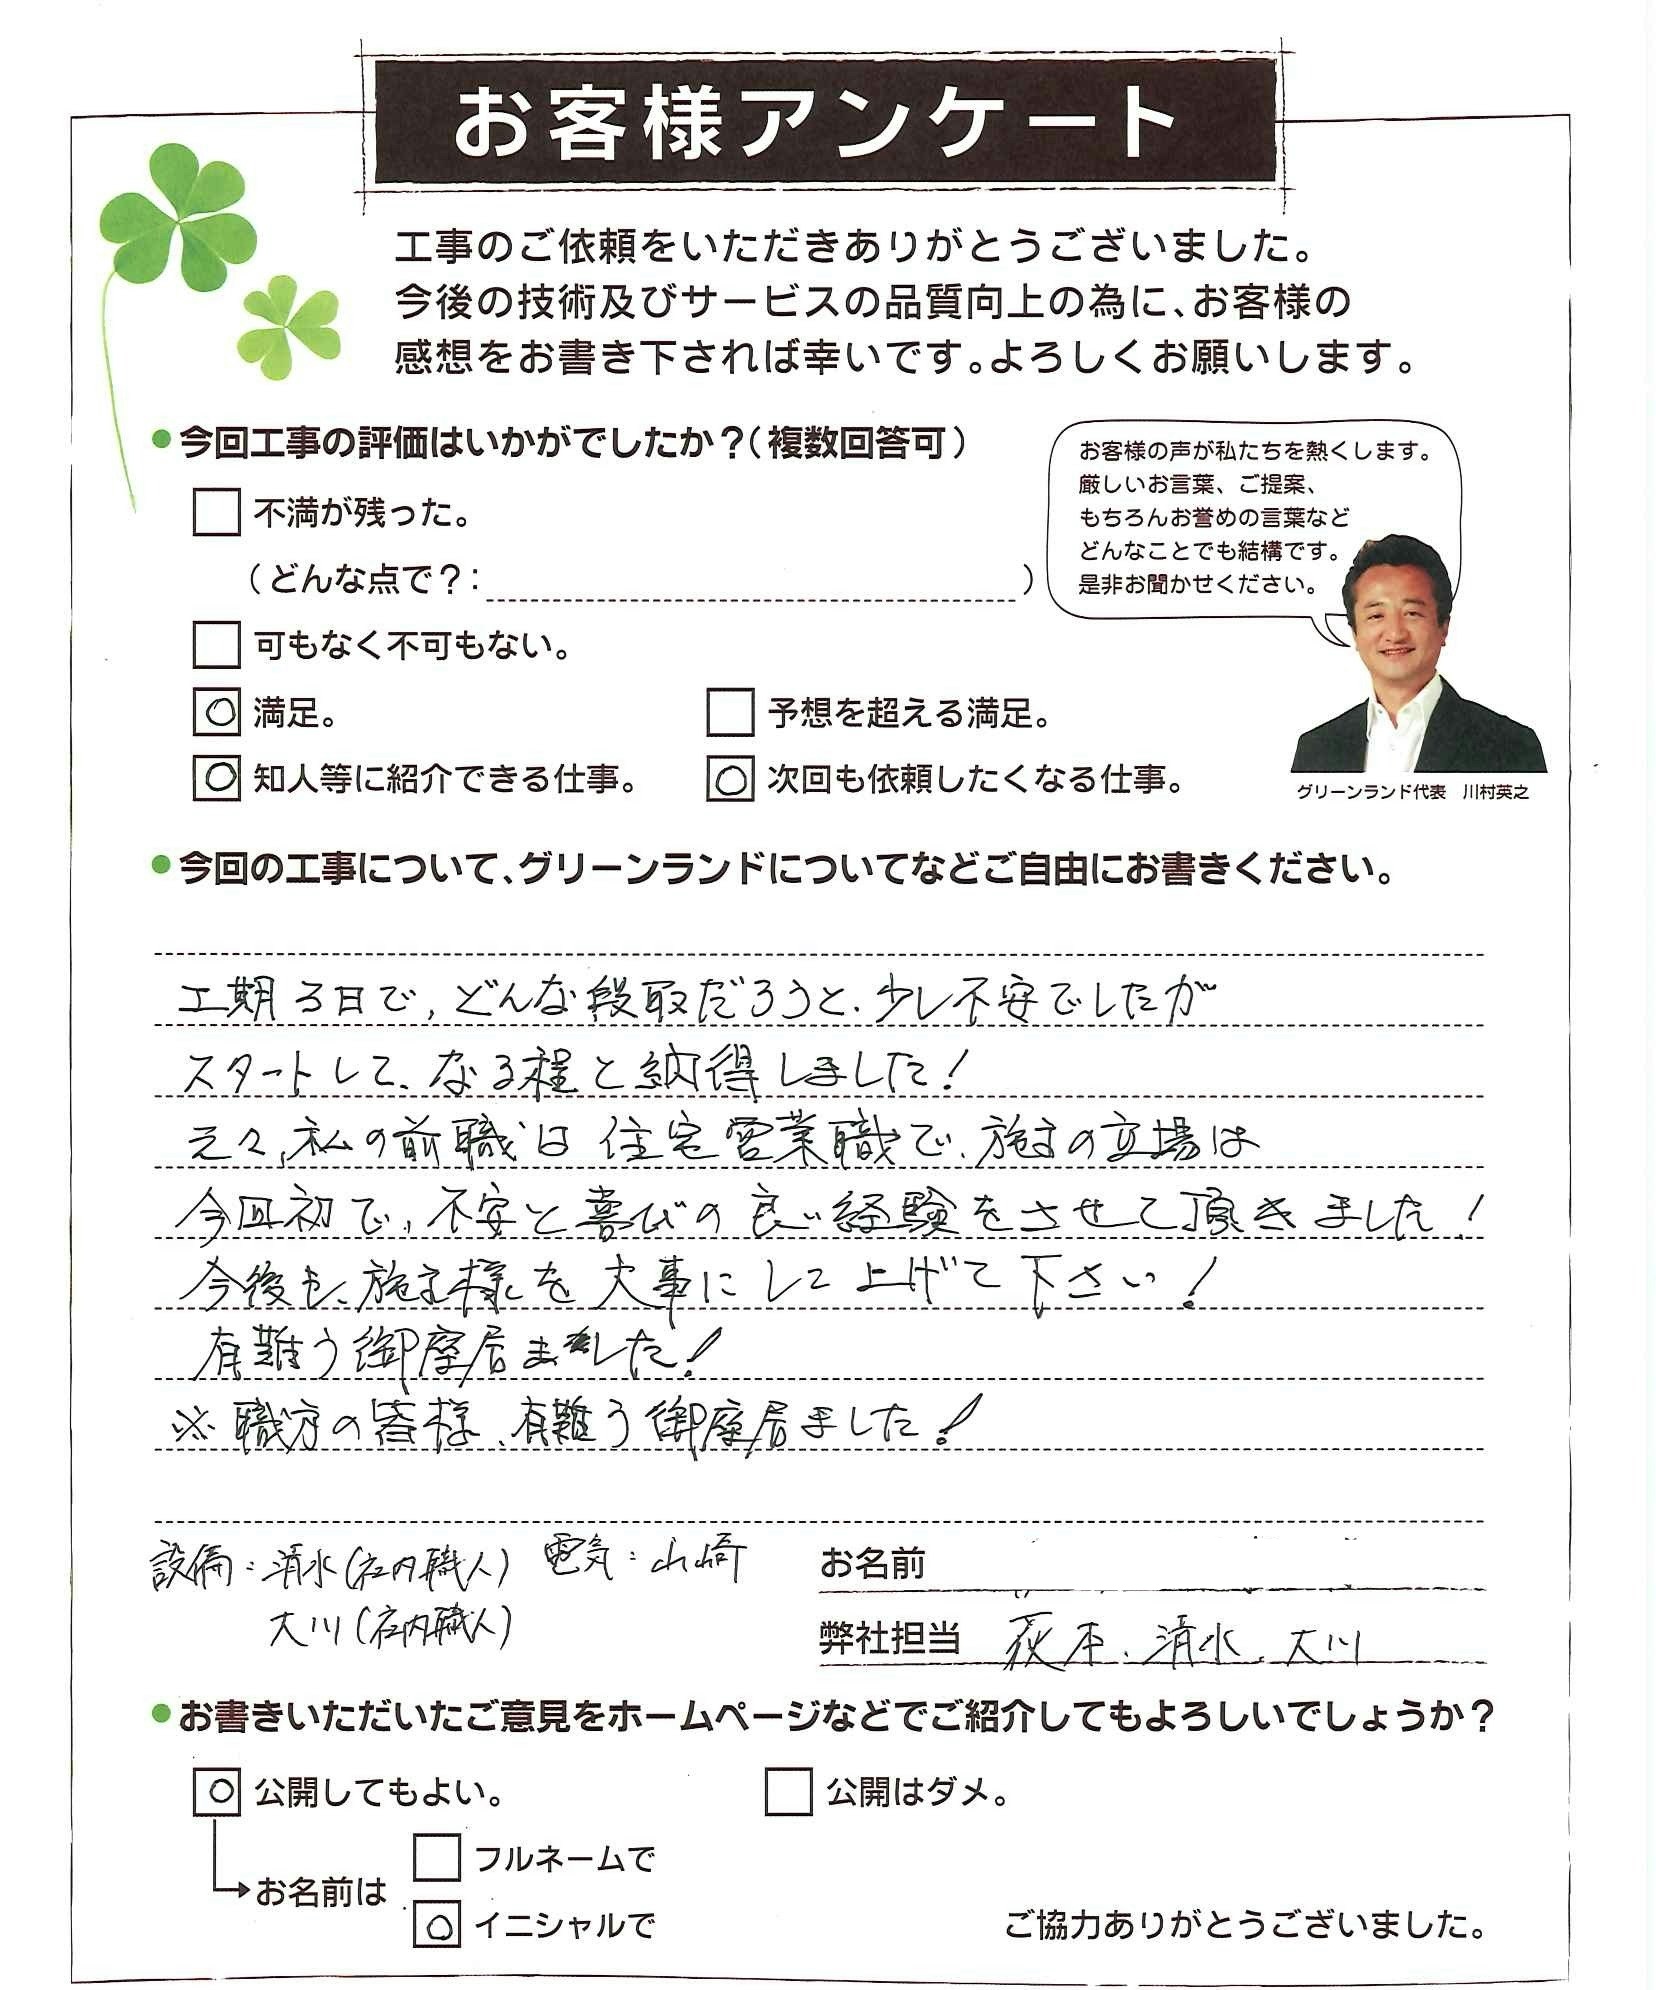 お客様アンケート
工事のご依頼をいただきありがとうございました。
今後の技術及びサービスの品質向上の為に、お客様の
感想をお書き下されば幸いです。よろしくお願いします。
●今回工事の評価はいかがでしたか？（複数回答可）
お客様の声が私たちを熱くします。
厳しいお言葉、ご提案、
もちろんお誉めの言葉など
どんなことでも結構です。
是非お聞かせください。
不満が残った。
（どんな点で？：　）
可もなく不可もない。
○ 満足。
予想を超える満足。
○ 知人等に紹介できる仕事。
○ 次回も依頼したくなる仕事。
グリーンランド代表　川村英之
●今回の工事について、グリーンランドについてなどご自由にお書きください。
工期3日で、どんな段取だろうと、少し不安でしたが
スタートして、なる程と納得しました！
元々、私の前職は住宅営業職で、施主の立場は
今回初で、不安と喜びの良い経験をさせて頂きました！
今後も、施主様を大事にして上げて下さい！
有難う御座居ました！
※職方の皆様、有難う御座居ました！
設備：清水（社内職人）　電気：山崎
大川（社内職人）
お名前
弊社担当　荻本、清水、大川
●お書きいただいたご意見をホームページなどでご紹介してもよろしいでしょうか？
○ 公開してもよい。
公開はダメ。
お名前は
フルネームで
○ イニシャルで
ご協力ありがとうございました。